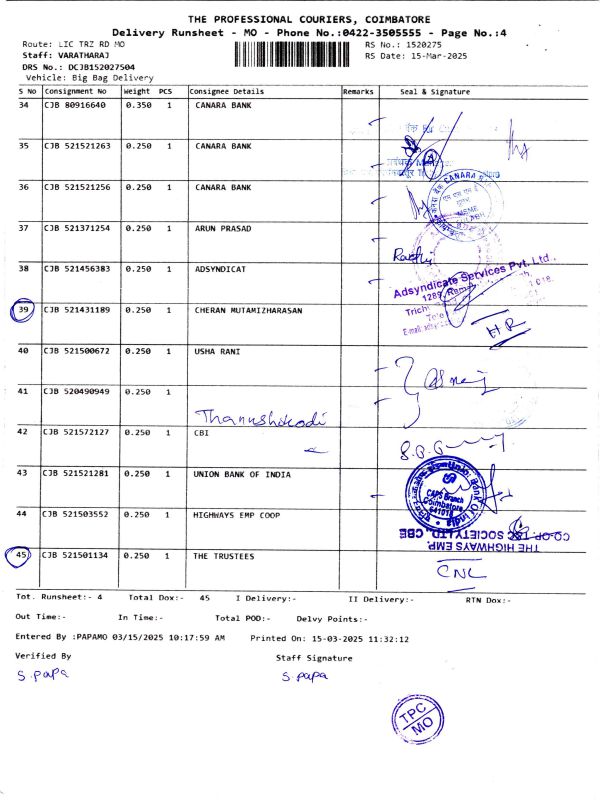 THE PROFESSIONAL COURIERS, COIMBATORE
Delivery Runsheet - MO - Phone No.:0422-3505555 - Page No.:4
Route: LIC TRZ RD MO RS No.: 1520275
Staff: VARATHARAJ RS Date: 15-Mar-2025
DRS No.: DCJB152027504
Vehicle: Big Bag Delivery
S No Consignment No Weight PCS Consignee Details Remarks Seal & Signature
34 CJB 80916640 0.350 1 CANARA BANK
35 CJB 521521263 0.250 1 CANARA BANK
36 CJB 521521256 0.250 1 CANARA BANK
CANARA
MSME
37 CJB 521371254 0.250 1 ARUN PRASAD
38 CJB 521456383 0.250 1 ADSYNDICAT
Adsyndicate Services Pvt. Ltd.
39 CJB 521431189 0.250 1 CHERAN MUTAMIZHARASAN
HR
40 CJB 521500672 0.250 1 USHA RANI
41 CJB 520490949 0.250 1
Thanushkodi
42 CJB 521572127 0.250 1 CBI
43 CJB 521521281 0.250 1 UNION BANK OF INDIA
CAPS Branch
Coimbatore
44 CJB 521503552 0.250 1 HIGHWAYS EMP COOP
THE HIGHWAYS EMP.
CO-OP. T&C SOCIETY LTD., CBE
45 CJB 521501134 0.250 1 THE TRUSTEES
CNL
Tot. Runsheet:- 4 Total Dox:- 45 I Delivery:- II Delivery:- RTN Dox:-
Out Time:- In Time:- Total POD:- Delvy Points:-
Entered By :PAPAMO 03/15/2025 10:17:59 AM Printed On: 15-03-2025 11:32:12
Verified By Staff Signature
S.papa S.papa
TPC
MO